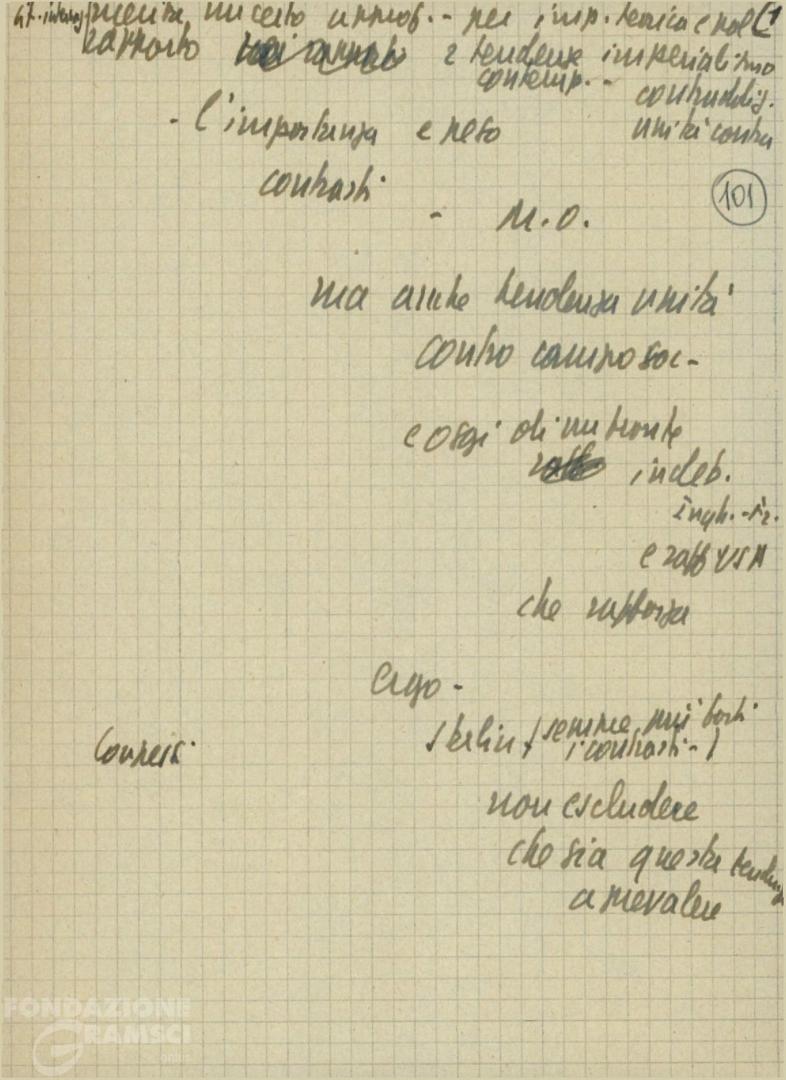 merita un certo approf. - per imp. teorica e pol
rapporto 2 tendenze imperialismo
contemp. -
contraddiz.
unità contra
- l'importanza e peso
contrasti
101
- M.O.
ma anche tendenza unità
contro campo soc -
e oggi di nu fronte
indeb.
ingh. - fr.
e raff USA
che rafforza
ergo -
Stalin / sempre più forti
i contrasti - /
Connessi
non escludere
che sia questa tendenza
a prevalere
FONDAZIONE
GRAMSCI
onlus